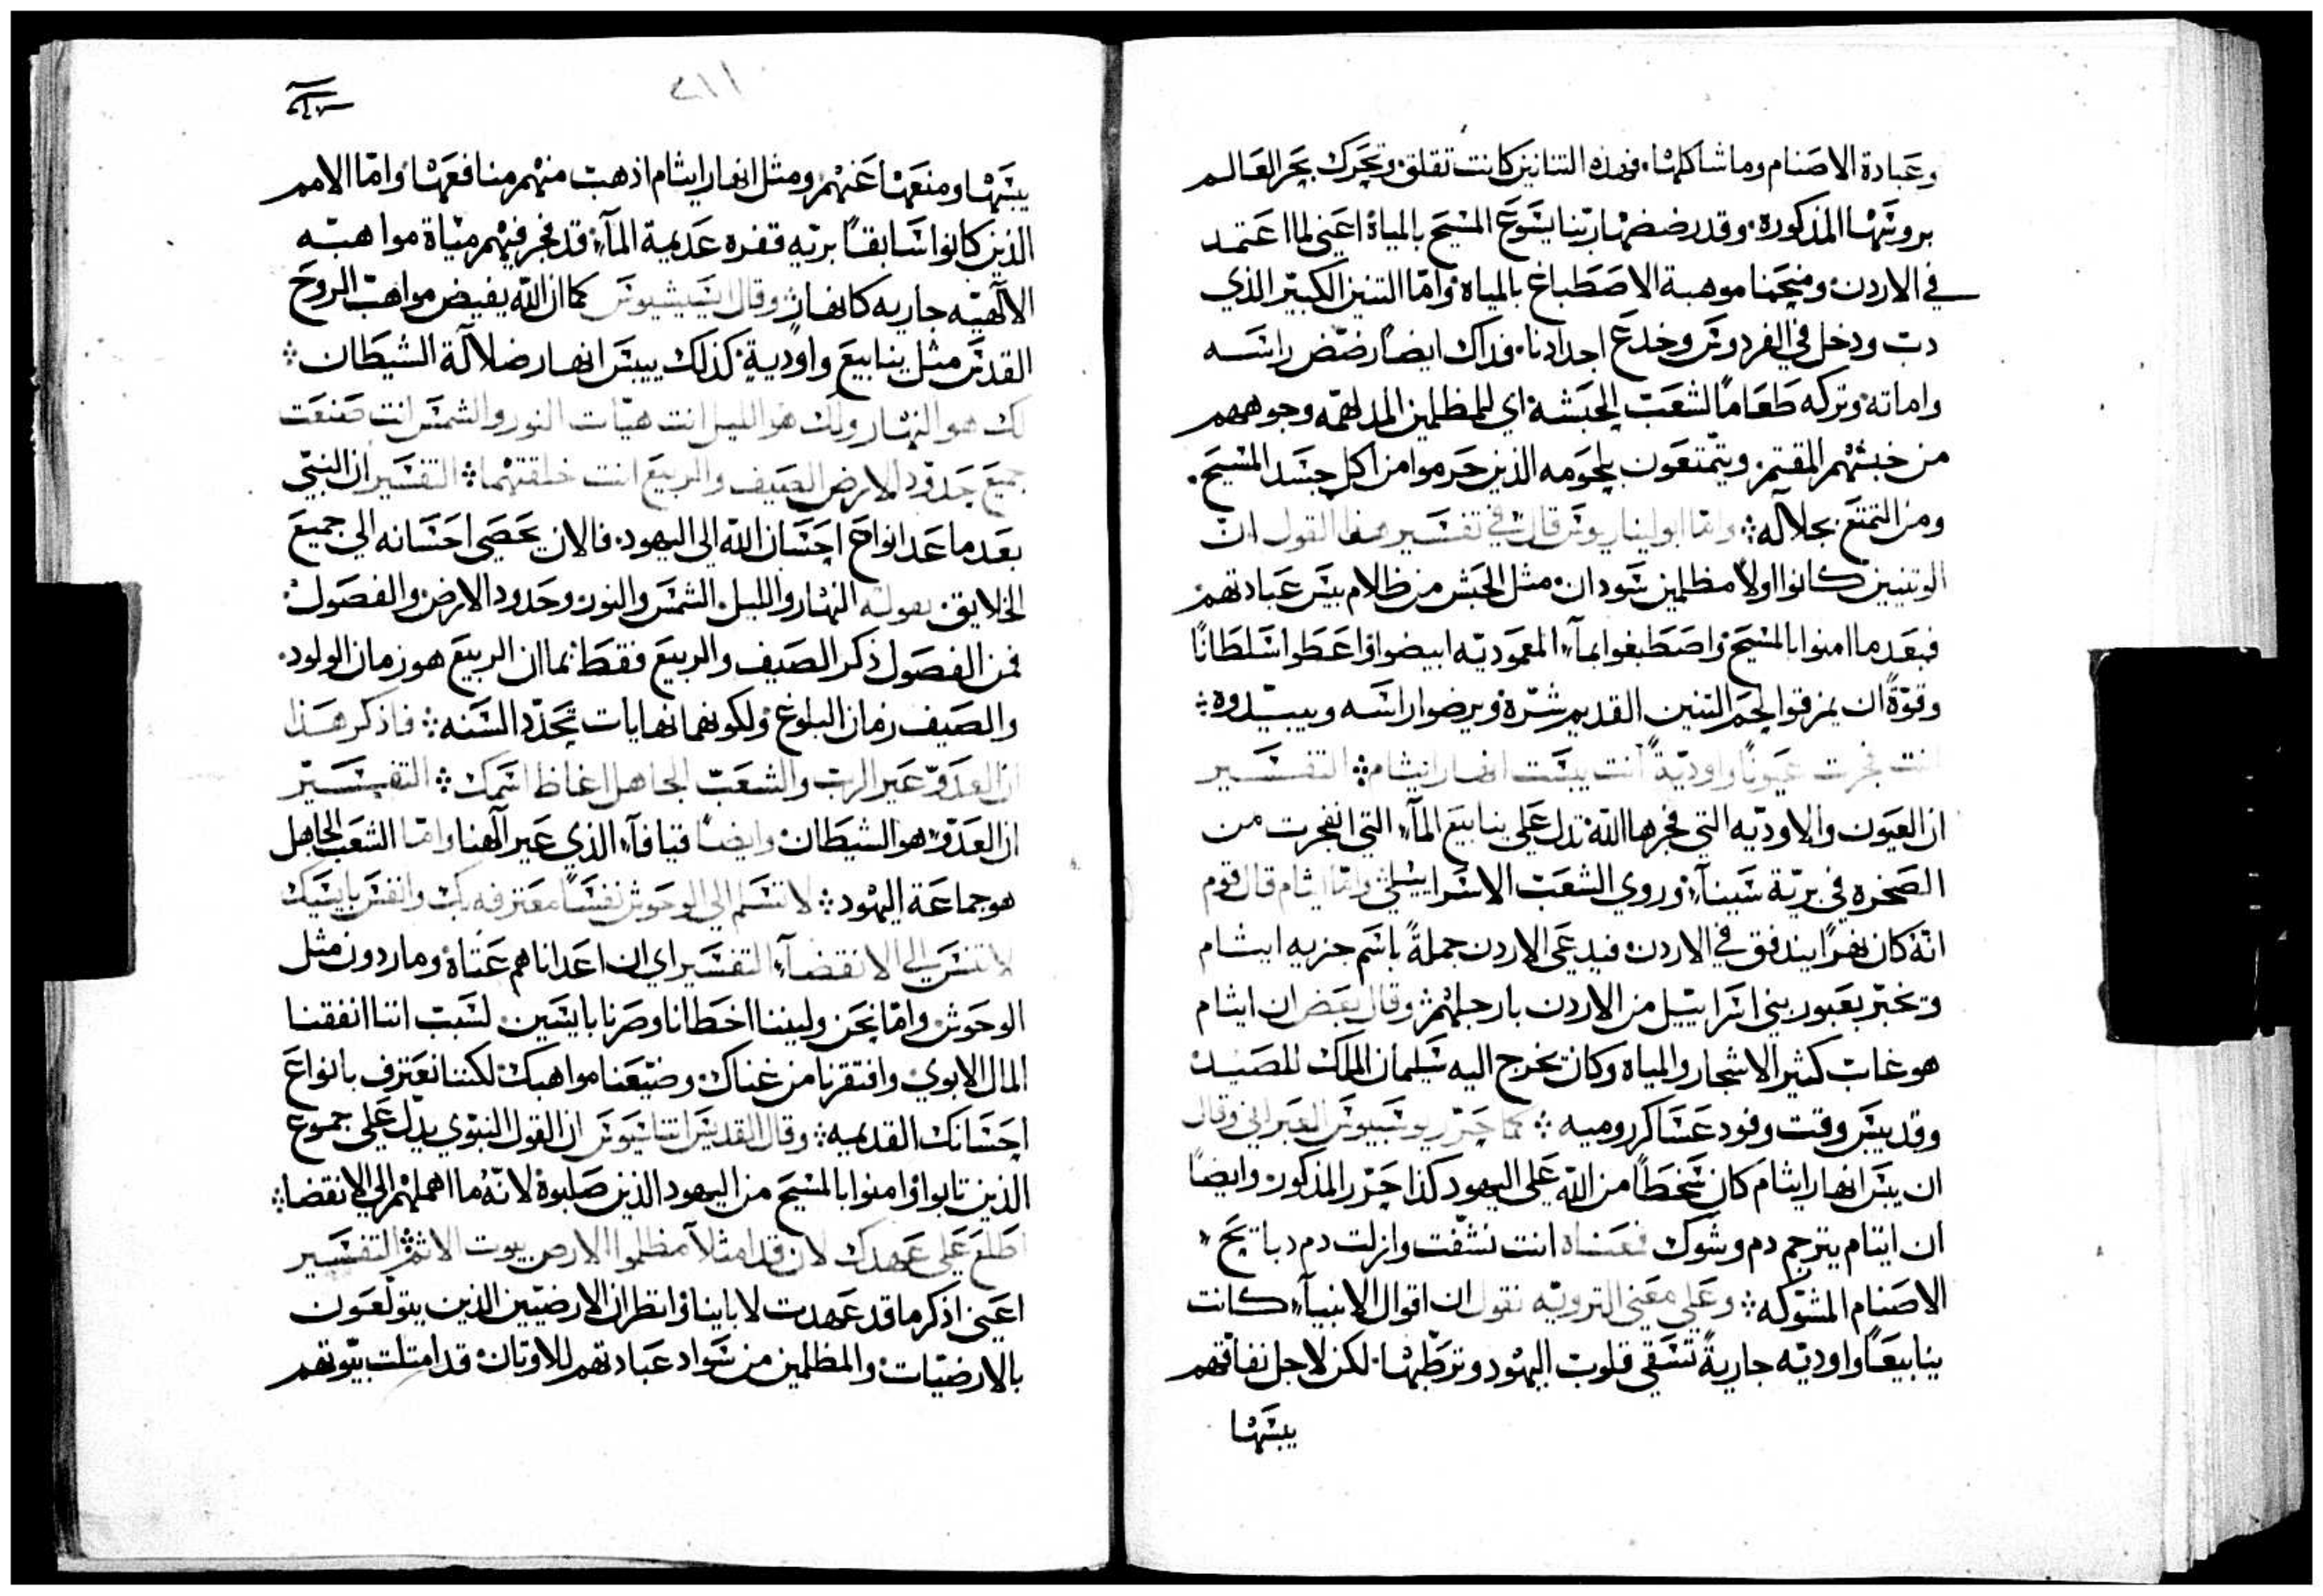 وعبادة الاصنام وما شاكلها. فهذه التنانين كانت تقلق وتحرك بحر العالم
برونتها المذكورة. وقد رضضها ربنا يسوع المسيح بالمياة اعني لما اعتمد
في الاردن ومنحنا موهبة الاصطباغ بالمياه واما التنين الكبير الذي
دب ودخل في الفردوس وخدع اجدادنا. فذاك ايضا رضض راسه
واماته وتركه طعاما لشعب الحبشة اي للمظلمين المدلهمه وجوههم
من خبثهم المقتم. ويتمتعون بلحومه الذين حرموا من اكل جسد المسيح.
ومن التمتع بجلاله واما ابوليناريوس قال في تفسير هذا القول ان
الوتنيين كانوا اولا مظلمين سودان مثل الحبش من ظلام بيس عبادتهم
فبعدما امنوا بالمسيح واصطبغوا بمآء المعموديه ابيضوا واعطوا سلطانا
وقوة ان يمزقوا لحم التنين القديم شره ويرضوا راسه ويبيدوه
انت فجرت عيونا واودية انت يبست انهار ايثام التفسير
ان العيون والاوديه التي فجرها الله تدل على ينابيع المآء التي انفجرت من
الصخره في برية سينآء وروي الشعب الاسراييلي واما ايثام قال قوم
انه كان نهرا يندفق في الاردن فيدعى الاردن جملة باسم جزيه ايثام
وتخبر بعبور بني اسراييل من الاردن بارجلهم وقال بعض ان ايثام
هو غاب كثير الاشجار والمياه وكان يخرج اليه سليمان الملك للصيد
وقد يبس وقت وفود عساكر روميه كما حرر يوسيبيوس العبراني وقال
ان يبس انهار ايثام كان سخطا من الله على اليهود كذا حرر المذكور وايضا
ان ايتام يترجم دم وشوك فمعناه انت نشفت وازلت دم دبايح
الاصنام المشوكه وعلى معنى الترويه نقول ان اقوال الانبيآء كانت
ينابيعا واوديه جارية تسقي قلوب اليهود وترطبها. لكن لاجل نفاقهم
يبسها
٢١١
يبسها ومنعها عنهم ومثل انهار ايثام اذهب منهم منافعها واما الامم
الذين كانوا سابقا بريه قفره عديمة المآء قد فجر فيهم مياة مواهبه
الالهيه جاريه كانهار وقال ايسيشيوس كما ان الله يفيض مواهب الروح
القدس مثل ينابيع واودية كذلك ييبس انهار ضلالة الشيطان
لك هو النهار ولك هو الليل انت هيات النور والشمس انت صنعت
جميع حدود الارض الصيف والربيع انت خلقتهما التفسير ان النبي
بعدما عد انواع احسان الله الى اليهود. فالان يحصي احسانه الي جميع
الخلايق بقوله النهار والليل الشمس والنور وحدود الارض والفصول
فمن الفصول ذكر الصيف والربيع فقط بما ان الربيع هو زمان الولود.
والصيف زمان البلوغ ولكونهما نهايات تحدد السنه فاذكر هذا
ان العدو عير الرب والشعب الجاهل اغاظ اسمك التفسير
ان العدو هو الشيطان وايضا قيافآء الذي عير الهنا واما الشعب الجاهل
هو جماعة اليهود لا تسلم الي الوحوش نفسا معترفه بك وانفس بايسيك
لا تنس الي الانقضآء التفسير اي ان اعدانا هم عتاة وماردون مثل
الوحوش واما نحن وليننا اخطانا وصرنا بايسين. لسبب اننا انفقنا
المال الابوي وافتقرنا من غناك وضيعنا مواهبك لكننا نعترف بانواع
احسانك القديمه وقال القديس اثناسيوس ان القول النبوي يدل على جموع
الذين تابوا وامنوا بالمسيح من اليهود الذين صلبوه لانه ما اهملهم الي الانقضا
اطلع على عهدك لان قد امتلا مظلموا الارض بيوت الاثم التفسير
اعني اذكر ما قد عهدت لاباينا وانظر ان الارضيين الذين يتولعون
بالارضيات والمظلمين من سواد عبادتهم للاوتان قد امتلت بيوتهم